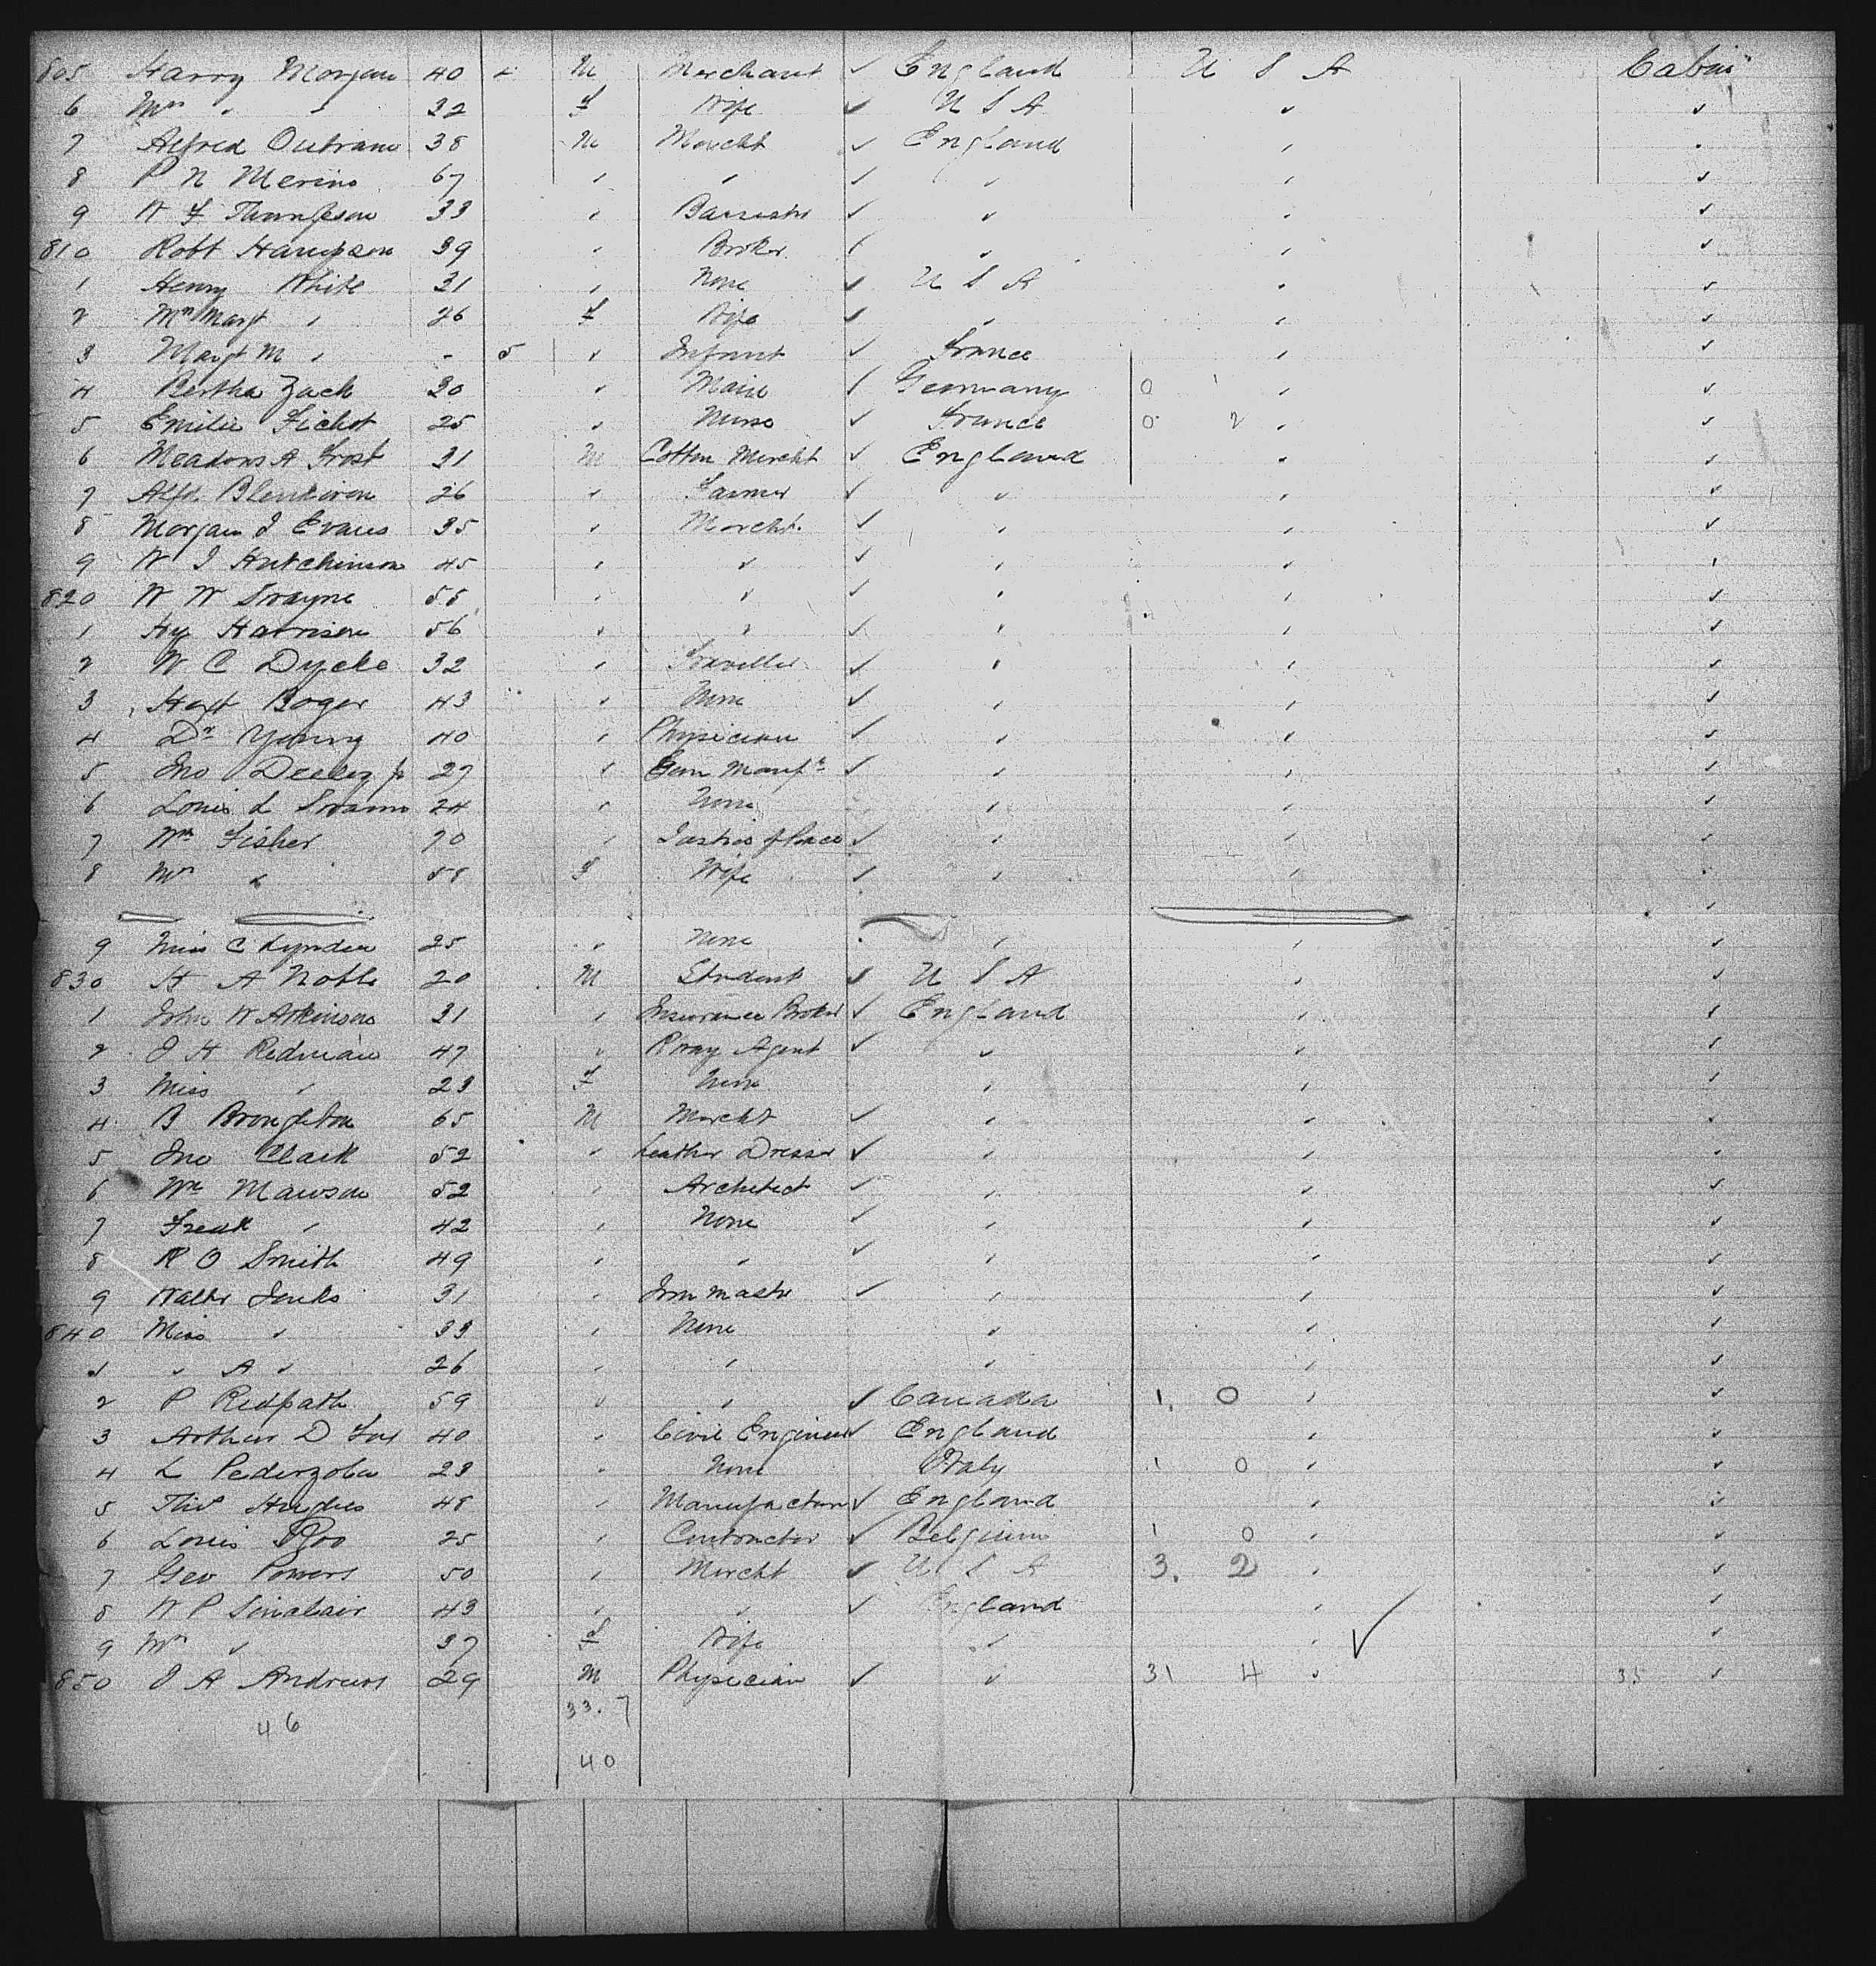 805 Harry Morgan 40 M Merchant ✓ England U S A Cabin
6 Mrs " " 32 F Wife ✓ U S A " "
7 Alfred Outram 38 M Mercht ✓ England " "
8 P N Merino 67 " " ✓ " " "
9 W F Thompson 33 " Barrister ✓ " " "
810 Robt Hampson 39 " Broker " " "
1 Henry White 31 " None ✓ U S A " "
2 Mrs Margt " 26 F Wife ✓ " " "
3 Margt M " - 5 " Infant ✓ France " "
4 Bertha Zack 30 " Maid Germany 0 1 " "
5 Emilie Fichot 25 " Nurse ✓ France 0 2 " "
6 Meadows A Frost 31 M Cotton Mercht ✓ England " "
7 Alfd. Blenkiron 26 " Farmer ✓ " " "
8 Morgan J Evans 35 " Mercht. ✓ " " "
9 W J Hutchinson 45 " " ✓ " " "
820 W W Swayne 55 " " ✓ " " "
1 Hy Harrison 56 " " ✓ " " "
2 W C Dycke 32 " Traveller ✓ " " "
3 Boger 43 " None ✓ " " "
4 Dr Young 40 " Physician ✓ " " "
5 Jno Deeley Jr 27 " Gun Manufr ✓ " " "
6 Louis L 24 " None " " "
7 Wm Fisher 70 " Justice of Peace ✓ " " "
8 Mrs " 58 F Wife ✓ " " "
9 Miss C 25 " None " " "
830 H A Noble 20 M Student ✓ U S A " "
1 John W Atkinson 31 " Insurance Broker ✓ England " "
2 J H Redman 47 " Rway Agent ✓ " " "
3 Miss " 23 F None " " "
4 B Broughton 65 M Mercht ✓ " " "
5 Jno Clark 52 " Leather Dresser ✓ " " "
6 Wm Mawson 52 " Architect ✓ " " "
7 Fredk " 42 " None ✓ " " "
8 R O Smith 49 " " ✓ " " "
9 Walter Jenks 31 " Iron Mastr ✓ " " "
840 Miss " 33 " None " " "
1 " A " 26 " " " " "
2 P Redpath 59 " " ✓ Canada 1. 0 " "
3 Arthur D Fox 40 " Civil Engineer ✓ England " "
4 L 23 " None Italy 1 0 " "
5 Thos Hughes 48 " Manufacturer ✓ England " "
6 Louis 25 " Contractor ✓ Belgium 1 0 " "
7 Geo Powers 50 " Mercht ✓ U S A 3. 2 " "
8 W P Sinclair 43 " " ✓ England " "
9 Mrs " 37 F Wife " " ✓ "
850 J A Andrews 29 M Physician ✓ " 31 4 " 35 "
46 33. 7
40